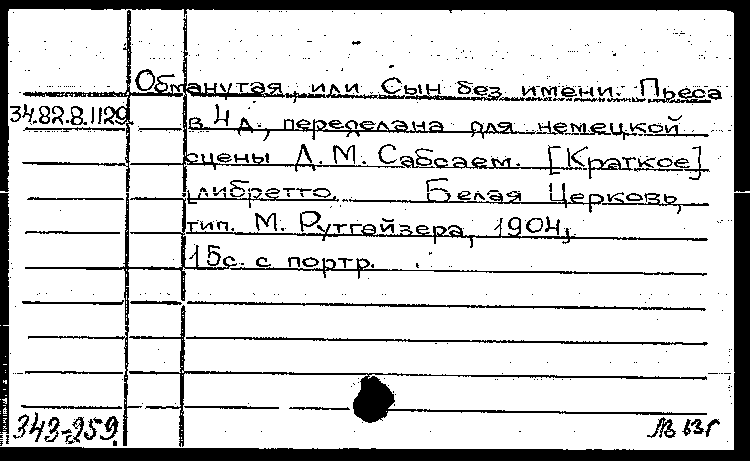 Обманутая, или Сын без имени. Пьеса
34.82.8.1129 в 4 д., переделана для немецкой
сцены Д. М. Сабсаем. [Краткое]
либретто. Белая Церковь,
тип. М. Рутгайзера, 1904,
15с. с портр.
343-259